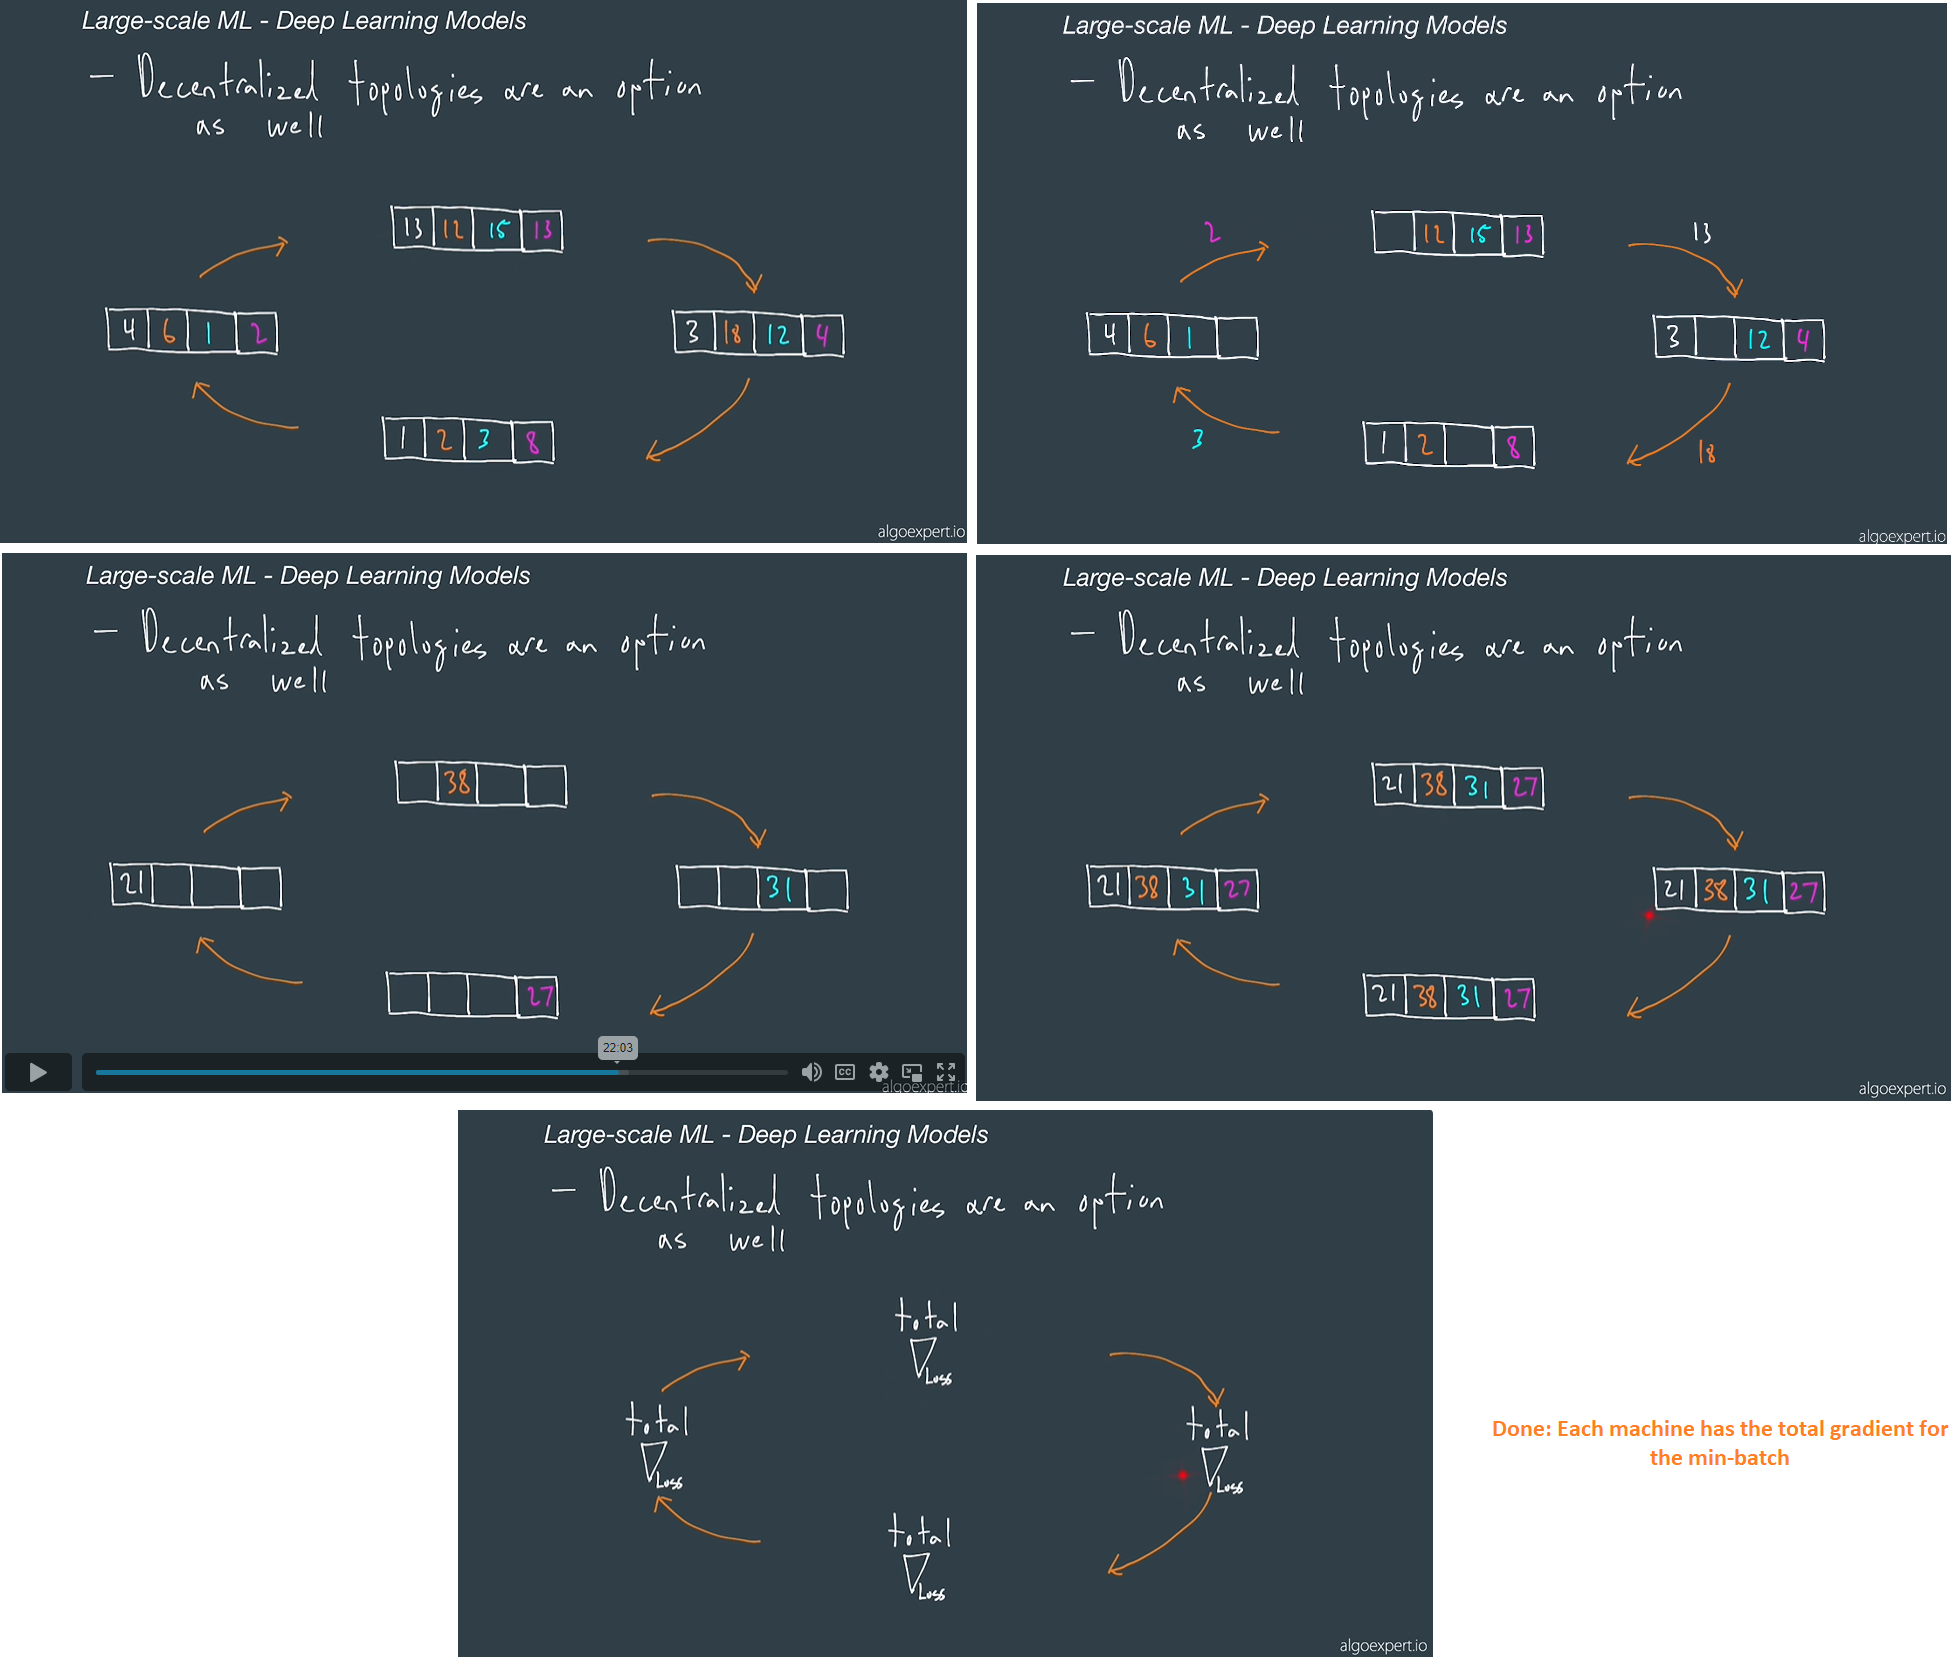 Large-scale ML - Deep Learning Models
- Decentralized topologies are an option
as well
13 12 15 13
4 6 1 2
3 18 12 4
1 2 3 8
algoexpert.io
Large-scale ML - Deep Learning Models
- Decentralized topologies are an option
as well
2
13
12 15 13
4 6 1
3 12 4
3
1 2 8
18
algoexpert.io
Large-scale ML - Deep Learning Models
- Decentralized topologies are an option
as well
38
21
31
27
22:03
CC
algoexpert.io
Large-scale ML - Deep Learning Models
- Decentralized topologies are an option
as well
21 38 31 27
21 38 31 27
21 38 31 27
21 38 31 27
algoexpert.io
Large-scale ML - Deep Learning Models
- Decentralized topologies are an option
as well
total
∇Loss
total
∇Loss
total
∇Loss
total
∇Loss
algoexpert.io
Done: Each machine has the total gradient for
the min-batch